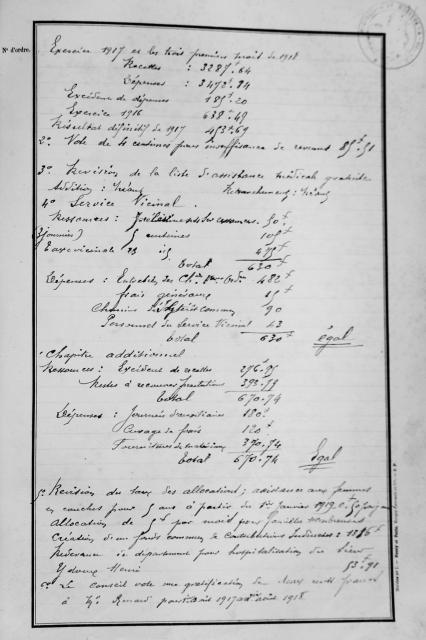 N° d'ordre.
Exercice 1917 et les trois premiers mois de 1918
Recettes : 3287f.64
Dépenses : 3472f.84
Excédent de dépenses 185f.20
Exercice 1916 638f.49
Résultat définitif de 1917 453f.69
2° Vote de 4 centimes pour insuffisance de revenus 85f.51
3° Revision de la liste d'assistance médicale gratuite
Addition : Néant Retranchement : Néant
4° Service Vicinal.
Ressources : 50f
(3 journées) 5 centimes 105f
Taxe vicinale 475f
Total 630f
Dépenses : Entretien des Ch. Vaux Ord. 482f
frais généraux 15f
Chemins d'Intérêt commun 90
Personnel du Service Vicinal 43
Total 630f égal
Chapitre additionnel
Ressources : Excédent de recettes 276f.95
Restes à recouvrer prestations 393.79
Total 670.74
Dépenses : Journées d'auxiliaires 180f
Curage de 120f
Fournitures de 370.74
Total 670.74 Egal
5° Revision du taux des allocations ; assistance aux femmes
en couches pour 5 ans à partir du 1er Janvier 1919
Allocation de 5f par mois pour familles nombreuses
Création d'un fonds commun de : 1886f
Redevance au département pour hospitalisation du Sieur
Henri 53f.91
6° Le conseil vote une gratification de deux cents francs
à Mr Renard pour août 1917 août 1918